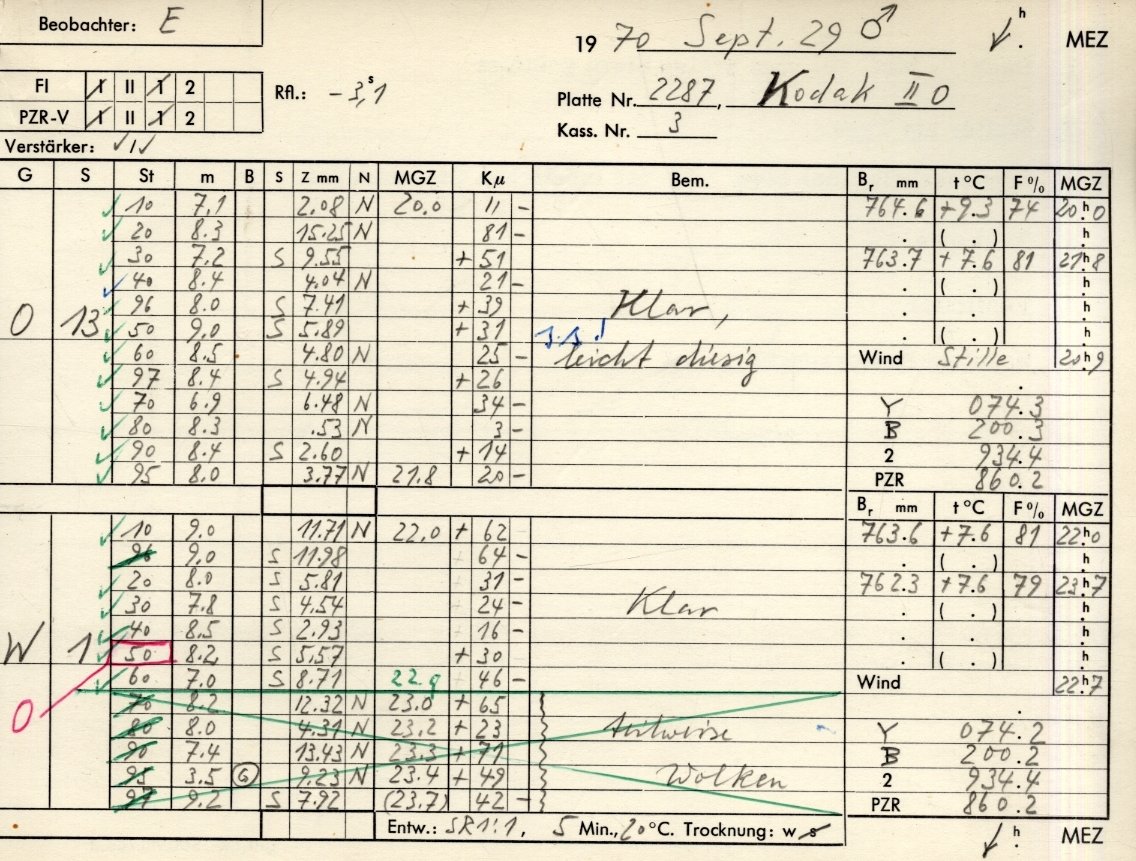 Beobachter: E
19 70 Sept. 29 ♂ h . MEZ
FI I II I 2 RA.: -3,1 s
Platte Nr. 2287, Kodak II O
PZR-V I II I 2
Kass. Nr. 3
Verstärker: √ 1 √
G S St m B S Z mm N MGZ Kμ Bem. Br mm t °C F % MGZ
10 7.1 2.08 N 20.0 11 - 764.6 +9.3 74 20h0
20 8.3 15.25 N 81 - . ( . ) h
30 7.2 S 9.55 + 51 763.7 +7.6 81 21h8
40 8.4 4.04 N 21 - . ( . ) h
96 8.0 S 7.41 + 39 Klar, . . h
O 13 50 9.0 S 5.89 + 31 . ( . ) h
60 8.5 4.80 N 25 - leicht diesig Wind Stille 20h9
97 8.4 S 4.94 + 26 .
70 6.9 6.48 N 34 - Y 074.3
80 8.3 .53 N 3 - B 200.3
90 8.4 S 2.60 + 14 2 934.4
95 8.0 3.77 N 21.8 20 - PZR 860.2
Br mm t °C F % MGZ
10 9.0 11.71 N 22.0 + 62 763.6 +7.6 81 22h0
96 9.0 S 11.98 64 - . ( . ) h
20 8.0 S 5.81 31 - 762.3 +7.6 79 23h7
30 7.8 S 4.54 24 - Klar . ( . ) h
40 8.5 S 2.93 16 - . . h
W 1 50 8.2 S 5.57 + 30 . ( . ) h
60 7.0 S 8.71 22.9 46 - Wind 22h7
O 70 8.2 12.32 N 23.0 + 65 .
80 8.0 4.31 N 23.2 + 23 teilweise Y 074.2
90 7.4 13.43 N 23.3 + 71 B 200.2
95 3.5 G 9.23 N 23.4 + 49 Wolken 2 934.4
97 9.2 S 7.92 (23.7) 42 - PZR 860.2
Entw.: SR1:1, 5 Min., 20 °C. Trocknung: w s h . MEZ